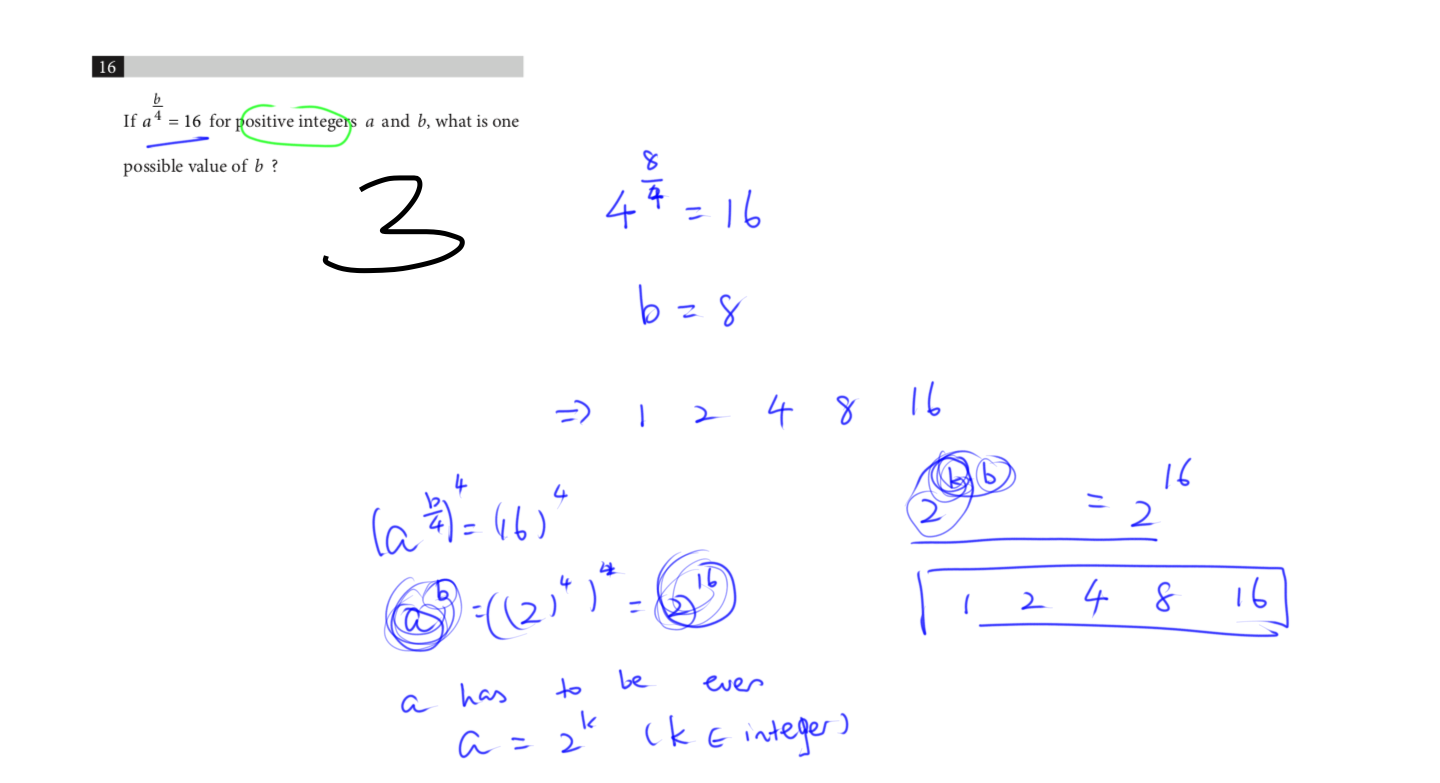 16
If a^(b/4) = 16 for positive integers a and b, what is one
possible value of b ?
3
4^(8/4) = 16
b = 8
⇒ 1 2 4 8 16
(a^(b/4))^4 = (16)^4
a^b = ((2)^4)^4 = 2^16
a has to be even
a = 2^k (k ∈ integer)
2^(kb) = 2^16
1 2 4 8 16